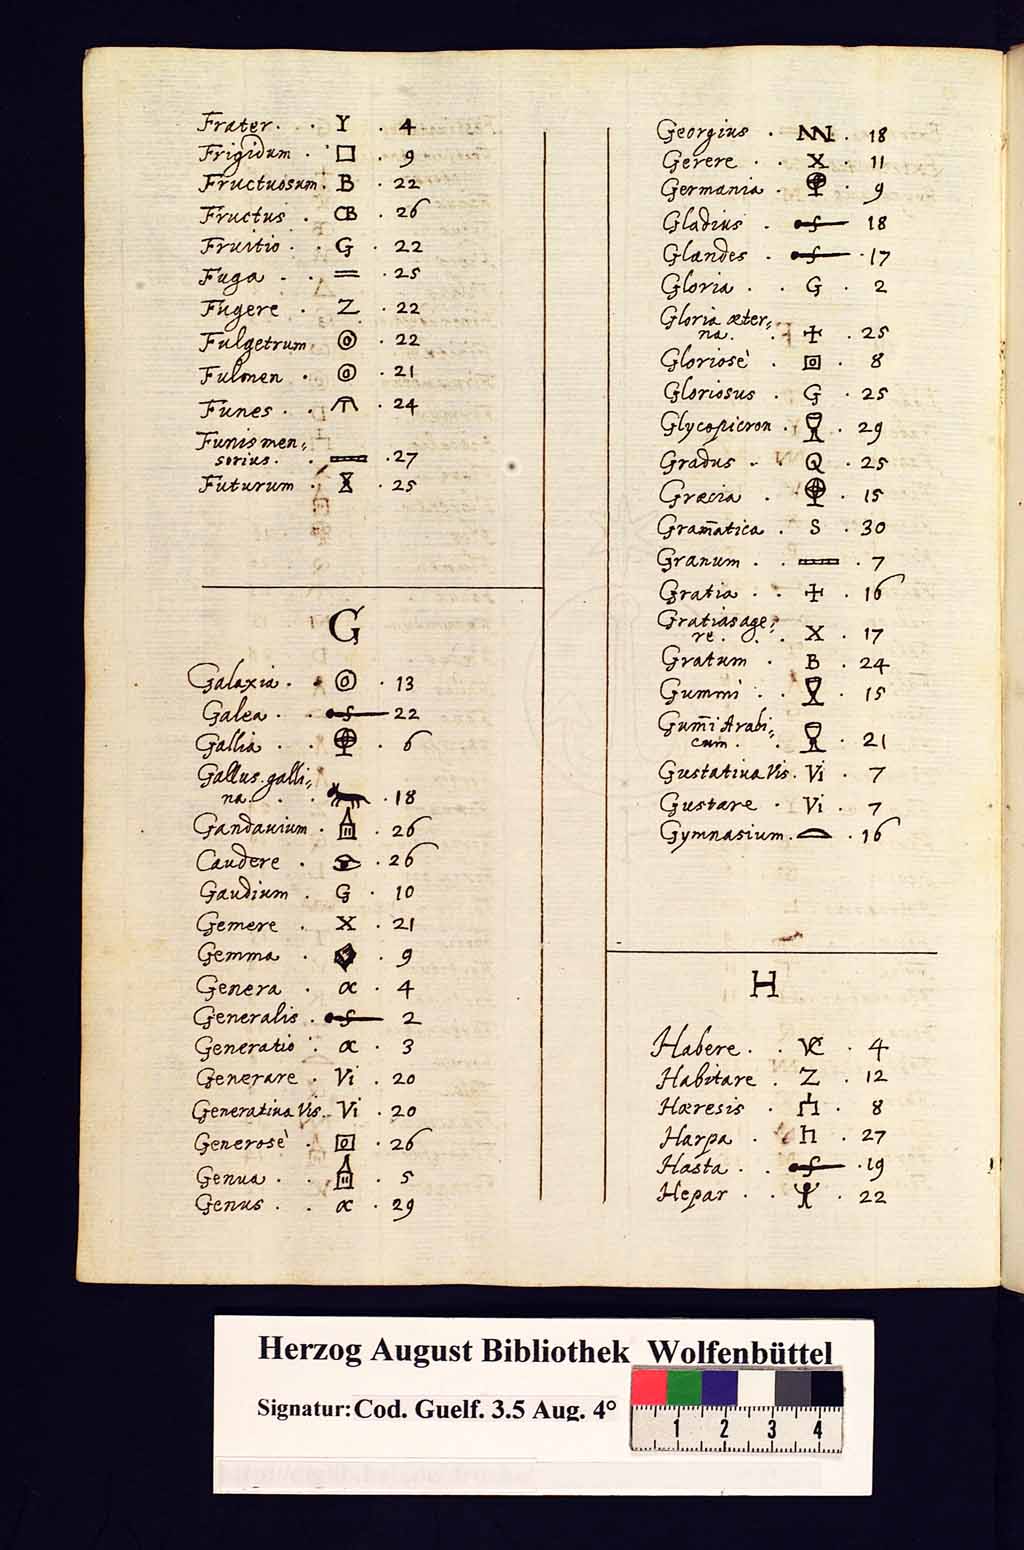 Frater . . Y . 4
Frigidum . □ . 9
Fructuosum . B . 22
Fructus . CB . 26
Fruitio . G . 22
Fuga . . = . 25
Fugere . Z . 22
Fulgetrum ⊙ . 22
Fulmen . ⊙ . 21
Funes . . . 24
Funis men,
sorius . . . 27
Futurum . . 25
G
Galaxia . . ⊙ . 13
Galea . . 22
Gallia . . . 6
Gallus . galli,
na . . . 18
Gandauium . . 26
Caudere . . 26
Gaudium . G . 10
Gemere . X . 21
Gemma . . 9
Genera . α . 4
Generalis . 2
Generatio . α . 3
Generare . Vi . 20
Generatiua Vis . Vi . 20
Generosè . 26
Genua . . . 5
Genus . . α . 29
Georgius . . 18
Gerere . . X . 11
Germania . . 9
Gladius . 18
Glandes . . 17
Gloria . . G . 2
Gloria æter,
na . . ✢ . 25
Gloriosè . . 8
Gloriosus . G . 25
Glycopicron . . 29
Gradus . . Q . 25
Græcia . . 15
Gram̄atica . S . 30
Granum . . . 7
Gratia . . ✢ . 16
Gratias age,
re . . . X . 17
Gratum . B . 24
Gummi . . . 15
Gum̄i Arabi,
cum . . . 21
Gustatiua Vis . Vi . 7
Gustare . Vi . 7
Gymnasium . . 16
H
Habere . . VC . 4
Habitare . Z . 12
Hæresis . . 8
Harpa . . 27
Hasta . . . 19
Hepar . . . 22
Herzog August Bibliothek Wolfenbüttel
Signatur: Cod. Guelf. 3.5 Aug. 4°
1 2 3 4